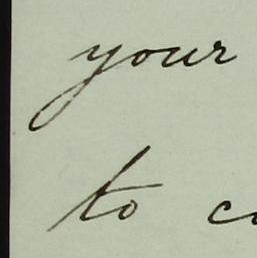 your
to